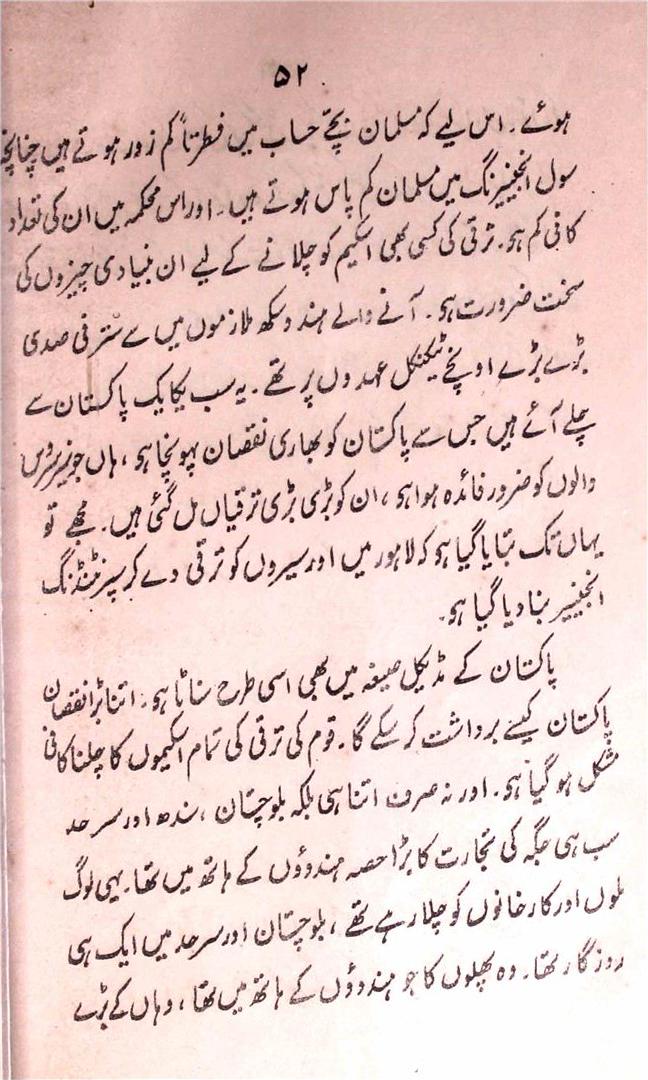 ۵۲
ہوئے۔ اس لیے کہ مسلمان بچے حساب میں فطرتاً کم زور ہوتے ہیں چنانچہ
سول انجینیرنگ میں مسلمان کم پاس ہوتے ہیں۔ اور اس محکمہ میں ان کی تعداد
کافی کم ہو۔ ترقی کی کسی بھی اسکیم کو چلانے کے لیے ان بنیادی چیزوں کی
سخت ضرورت ہو۔ آنے والے ہندو سکھ ملازموں میں سے ستر فی صدی
بڑے بڑے اونچے ٹیکنکل عہدوں پر تھے۔ یہ سب یکایک پاکستان سے
چلے آئے ہیں جس سے پاکستان کو بھاری نقصان پہونچا ہو، ہاں جونیر سروس
والوں کو ضرور فائدہ ہوا ہو، ان کو بڑی بڑی ترقیاں مل گئی ہیں۔ مجھے تو
یہاں تک بتایا گیا ہو کہ لاہور میں اورسیروں کو ترقی دے کر سپرنٹنڈنگ
انجینیر بنا دیا گیا ہو۔
پاکستان کے مڈیکل صیغہ میں بھی اسی طرح سناٹا ہو۔ اتنا بڑا نقصان
پاکستان کیسے برداشت کر سکے گا۔ قوم کی ترقی کی تمام اسکیموں کا چلنا کافی
مشکل ہو گیا ہو۔ اور نہ صرف اتنا ہی بلکہ بلوچستان، سندھ اور سرحد
سب ہی جگہ کی تجارت کا بڑا حصہ ہندوؤں کے ہاتھ میں تھا۔ یہی لوگ
ملوں اور کارخانوں کو چلا رہے تھے، بلوچستان اور سرحد میں ایک ہی
روزگار تھا۔ وہ پھلوں کا جو ہندوؤں کے ہاتھ میں تھا، وہاں کے بڑے